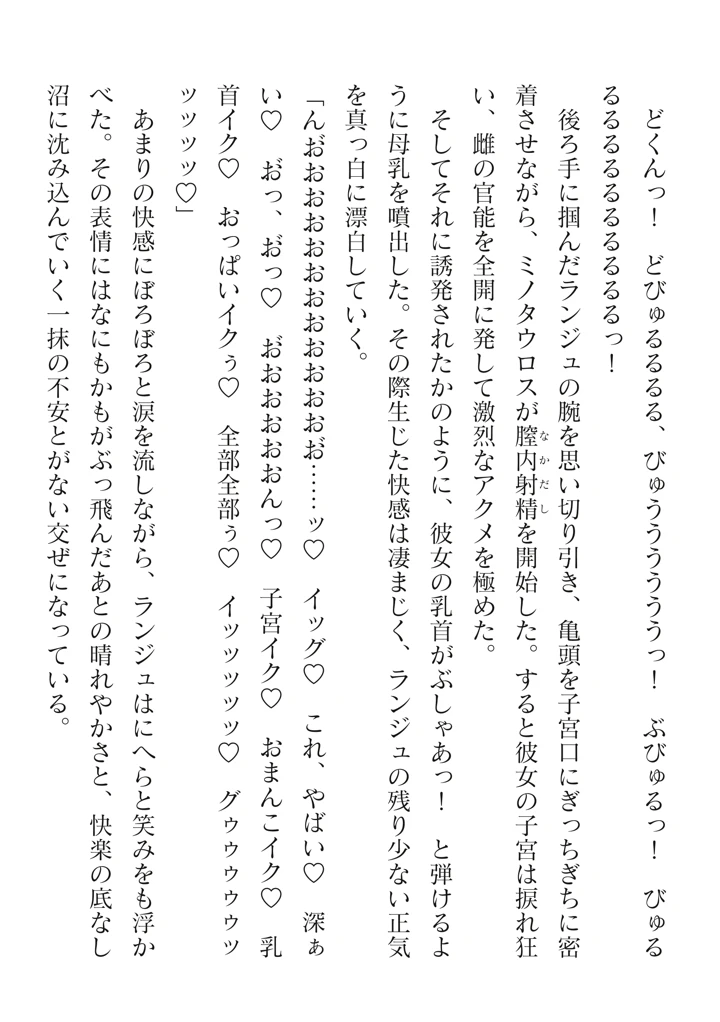 どくんっ！　どびゅるるるる、びゅうううううっ！　ぶびゅるっ！　びゅる
るるるるるるるるるるっ！
　後ろ手に掴んだランジュの腕を思い切り引き、亀頭を子宮口にぎっちぎちに密
着させながら、ミノタウロスが膣内射精（なかだし）を開始した。すると彼女の子宮は捩れ狂
い、雌の官能を全開に発して激烈なアクメを極めた。
　そしてそれに誘発されたかのように、彼女の乳首がぶしゃあっ！　と弾けるよ
うに母乳を噴出した。その際生じた快感は凄まじく、ランジュの残り少ない正気
を真っ白に漂白していく。
「んお゛おおおおおおおおおおおお゛……ッ♡　イッグ♡　これ、やばい♡　深ぁ
い♡　お゛っ、お゛っ♡　お゛おおおおおんっ♡　子宮イク♡　おまんこイク♡　乳
首イク♡　おっぱいイクぅ♡　全部全部ぅ♡　イッッッッッ♡　グゥゥゥゥゥッ
ッッッッ♡」
　あまりの快感にぼろぼろと涙を流しながら、ランジュはにへらと笑みをも浮か
べた。その表情にはなにもかもがぶっ飛んだあとの晴れやかさと、快楽の底なし
沼に沈み込んでいく一抹の不安とがない交ぜになっている。